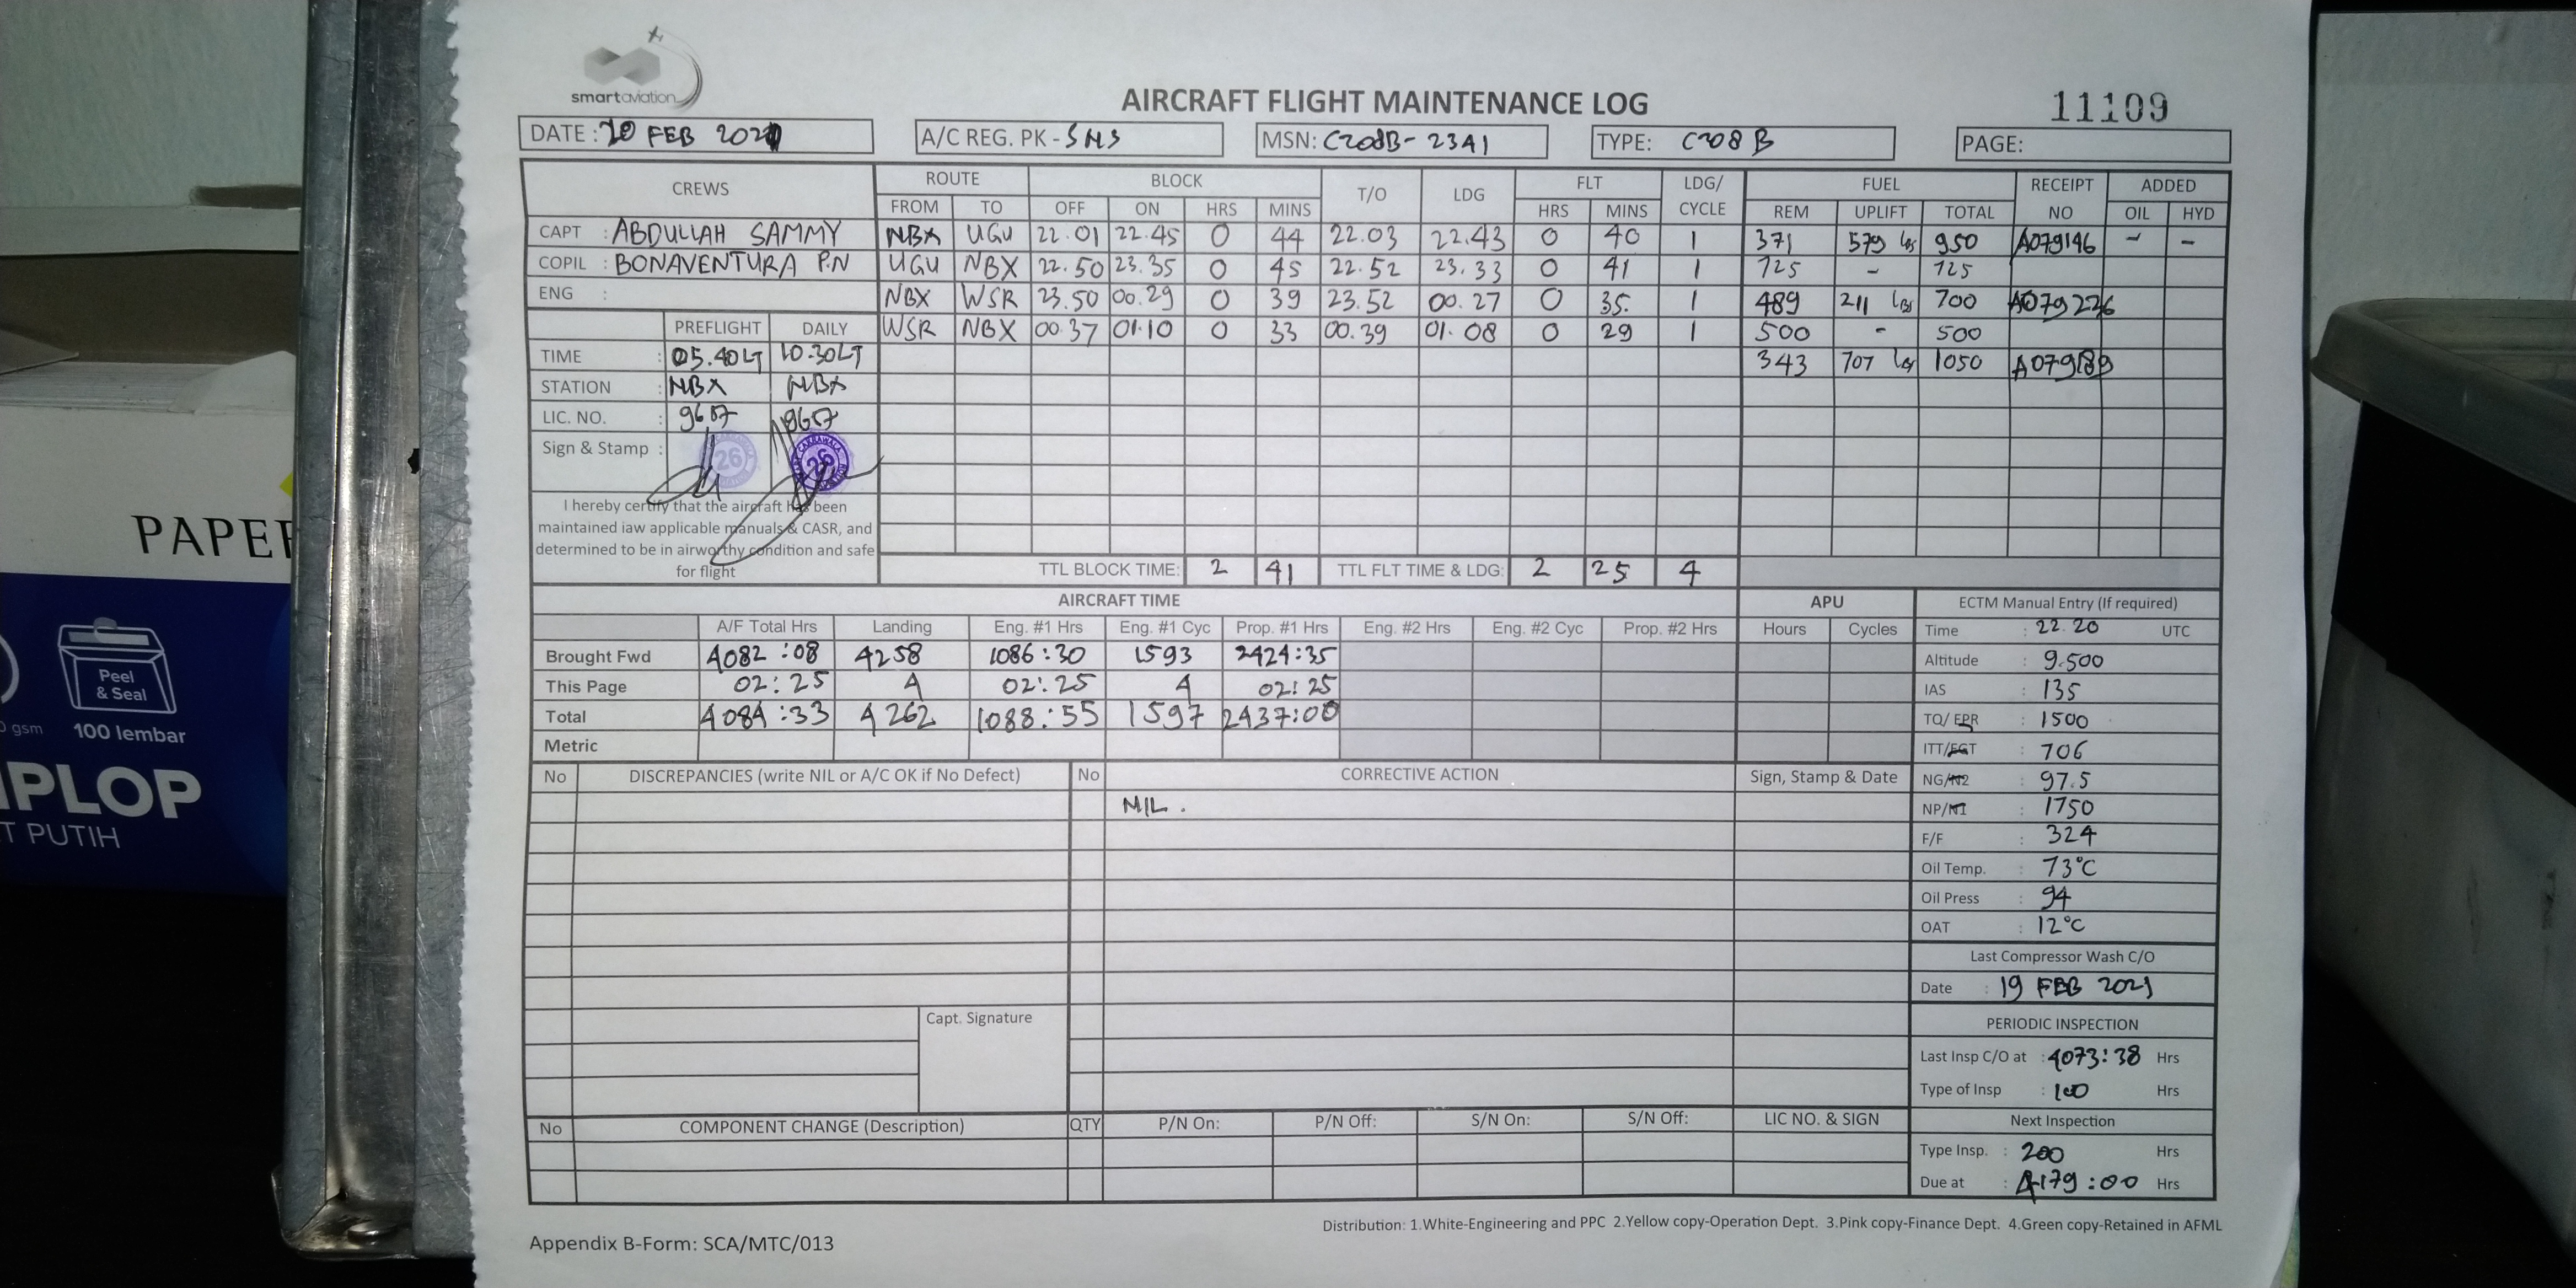 smartaviation
AIRCRAFT FLIGHT MAINTENANCE LOG
11109
DATE : 20 FEB 2021
A/C REG. PK - SNS
MSN: C208B- 2341
TYPE: C208 B
PAGE:
CREWS ROUTE BLOCK T/O LDG FLT LDG/ CYCLE FUEL RECEIPT NO ADDED
FROM TO OFF ON HRS MINS HRS MINS REM UPLIFT TOTAL OIL HYD
CAPT : ABDULLAH SAMMY NBX UGU 22.01 22.45 0 44 22.03 22.43 0 40 1 371 579 lbs 950 A079146 - -
COPIL : BONAVENTURA P.N UGU NBX 22.50 23.35 0 45 22.52 23.33 0 41 1 725 - 725
ENG : NBX WSR 23.50 00.29 0 39 23.52 00.27 0 35. 1 489 211 lbs 700 A079226
WSR NBX 00.37 01.10 0 33 00.39 01.08 0 29 1 500 - 500
343 707 lbs 1050 A079189
PREFLIGHT DAILY
TIME : 05.40LT 10.30LT
STATION : NBX NBX
LIC. NO. : 9617 9617
Sign & Stamp :
26 26
I hereby certify that the aircraft has been
maintained iaw applicable manuals & CASR, and
determined to be in airworthy condition and safe
for flight
TTL BLOCK TIME: 2 41 TTL FLT TIME & LDG: 2 25 4
AIRCRAFT TIME APU
A/F Total Hrs Landing Eng. #1 Hrs Eng. #1 Cyc Prop. #1 Hrs Eng. #2 Hrs Eng. #2 Cyc Prop. #2 Hrs Hours Cycles
Brought Fwd 4082 :08 4258 1086:30 1593 2424:35
This Page 02:25 4 02:25 4 02:25
Total 4084:33 4262 1088:55 1597 2437:00
Metric
ECTM Manual Entry (If required)
Time : 22.20 UTC
Altitude : 9.500
IAS : 135
TQ/ EPR : 1500
ITT/EGT : 706
NG/N2 : 97.5
NP/N1 : 1750
F/F : 324
Oil Temp. : 73°C
Oil Press : 94
OAT : 12°C
Last Compressor Wash C/O
Date : 19 FEB 2021
PERIODIC INSPECTION
Last Insp C/O at : 4073:38 Hrs
Type of Insp : 100 Hrs
Next Inspection
Type Insp. : 200 Hrs
Due at : 4179:00 Hrs
No DISCREPANCIES (write NIL or A/C OK if No Defect) No CORRECTIVE ACTION Sign, Stamp & Date
NIL .
Capt. Signature
No COMPONENT CHANGE (Description) QTY P/N On: P/N Off: S/N On: S/N Off: LIC NO. & SIGN
Distribution: 1.White-Engineering and PPC 2.Yellow copy-Operation Dept. 3.Pink copy-Finance Dept. 4.Green copy-Retained in AFML
Appendix B-Form: SCA/MTC/013
PAPER
Peel
& Seal
gsm 100 lembar
PLOP
PUTIH